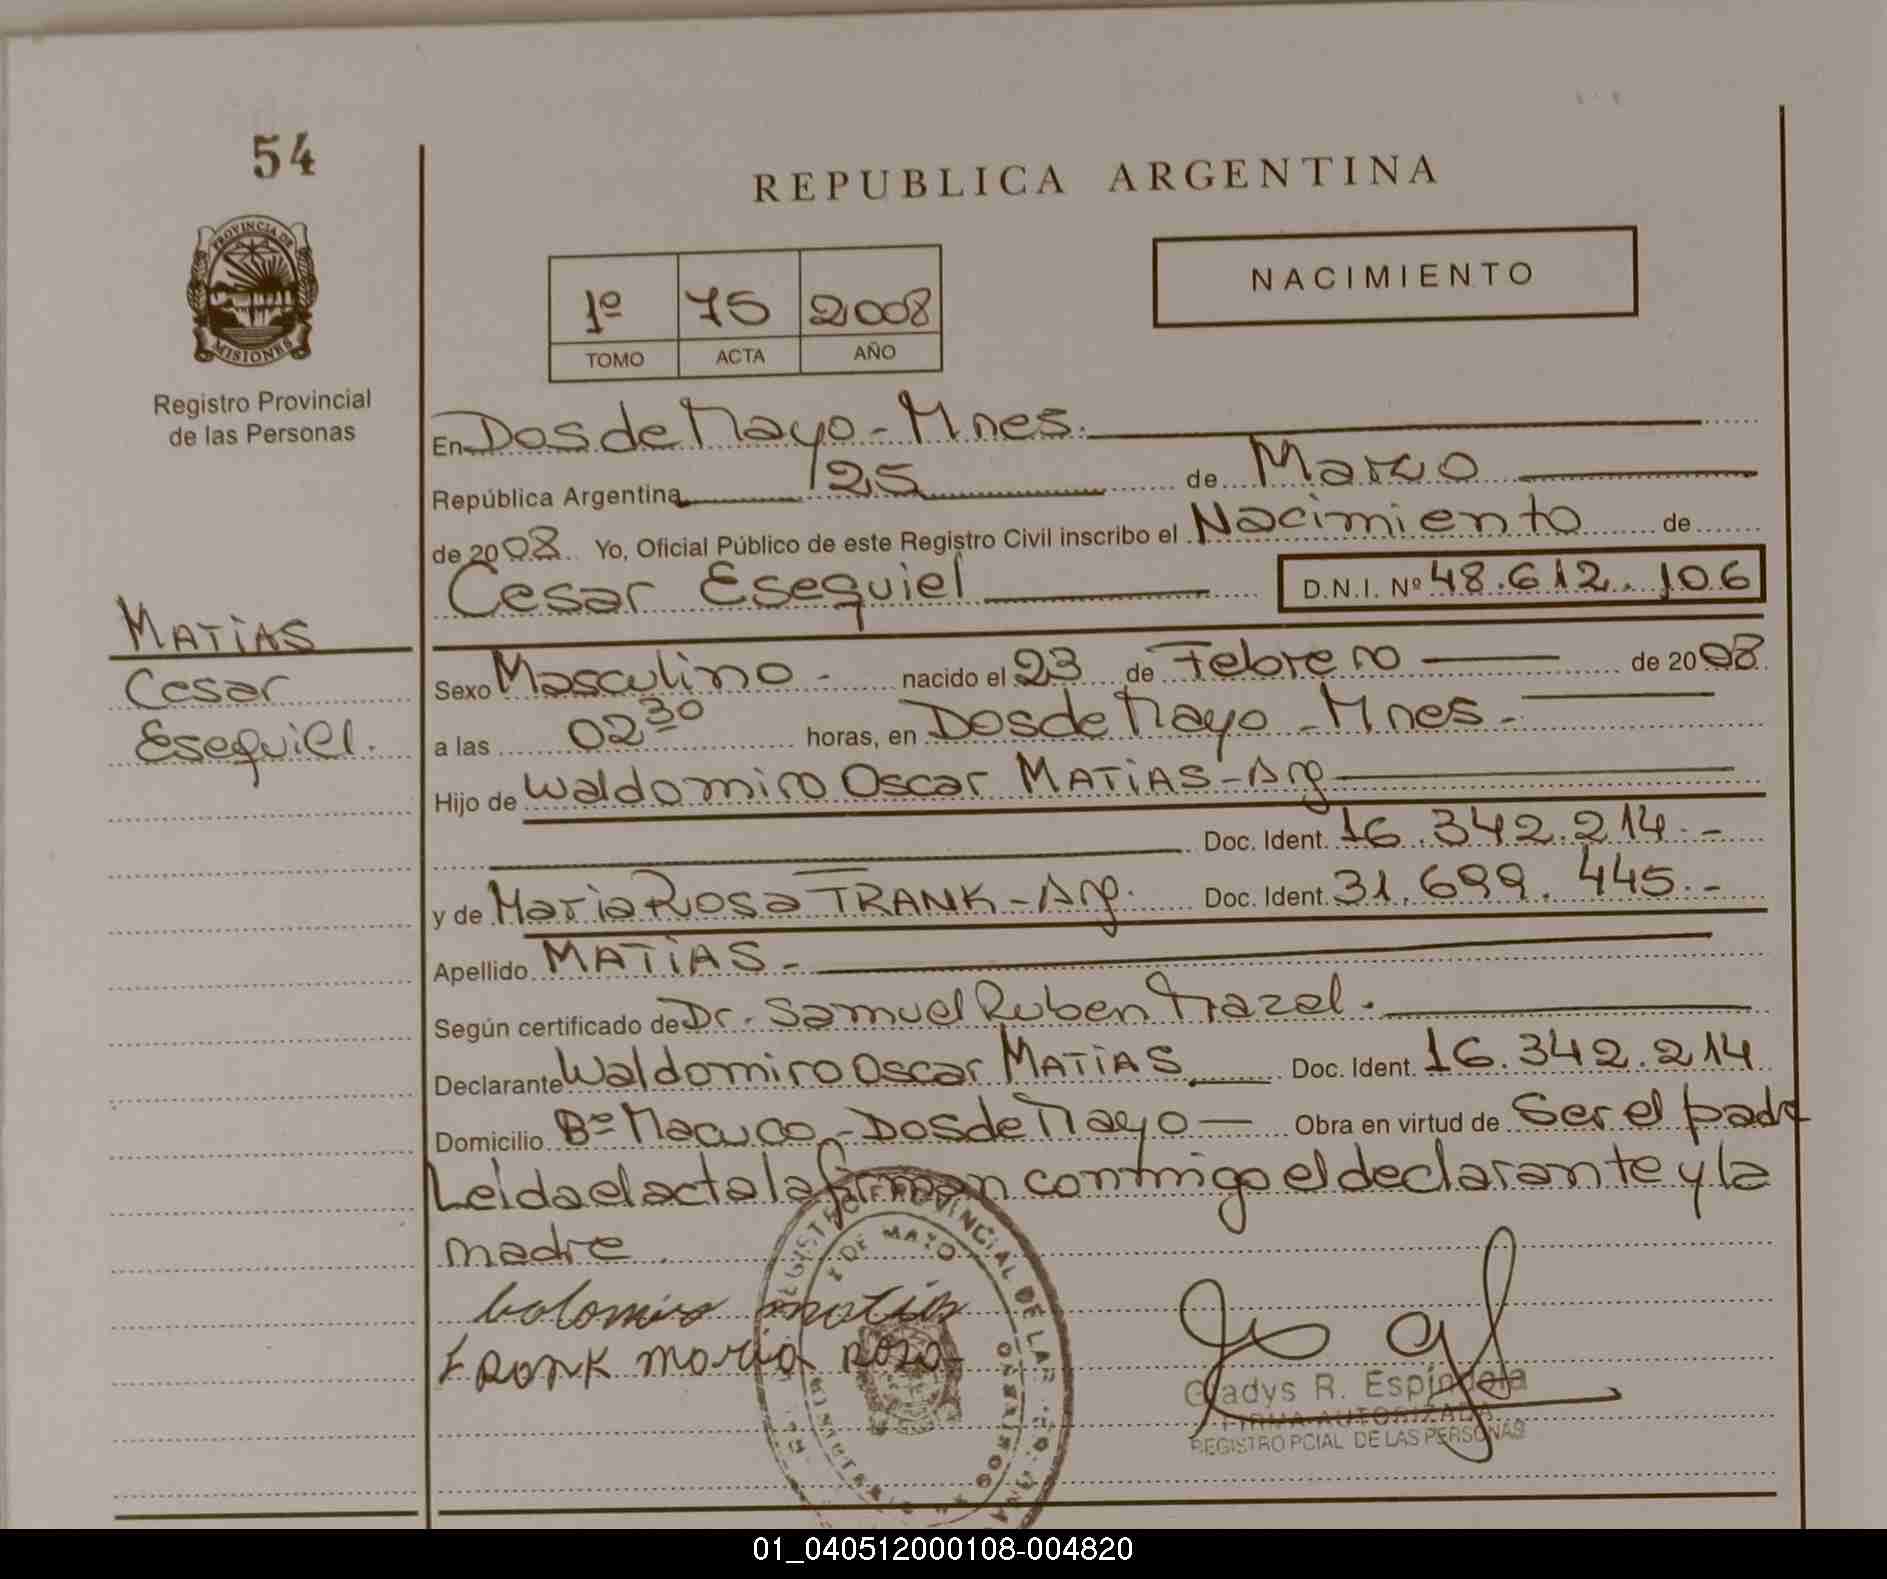 54
REPUBLICA ARGENTINA
PROVINCIA DE
MISIONES
Registro Provincial
de las Personas
1º 75 2008
TOMO ACTA AÑO
NACIMIENTO
En Dos de Mayo - Mnes.
República Argentina, 25 de Marzo
de 2008. Yo, Oficial Público de este Registro Civil inscribo el Nacimiento de
Cesar Esequiel D.N.I. Nº 48.612.106
MATIAS
Cesar
Esequiel.
Sexo Masculino - nacido el 23 de Febrero de 2008
a las 02 30 horas, en Dos de Mayo - Mnes -
Hijo de Waldomiro Oscar MATIAS - Arg
Doc. Ident. 16.342.214.-
y de Maria Rosa FRANK - Arg. Doc. Ident. 31.699.445.-
Apellido MATIAS -
Según certificado de Dr. Samuel Ruben Mazal.
Declarante Waldomiro Oscar MATIAS Doc. Ident. 16.342.214
Domicilio Bº Macuco - Dos de Mayo - Obra en virtud de Ser el padre
Leida el acta la firman conmigo el declarante y la
madre
matias
FRANK maria rosa
REGISTRO PROVINCIAL DE LAS
2 DE MAYO
Gladys R. Espindola
FIRMA AUTORIZADA
REGISTRO PCIAL DE LAS PERSONAS
01_040512000108-004820